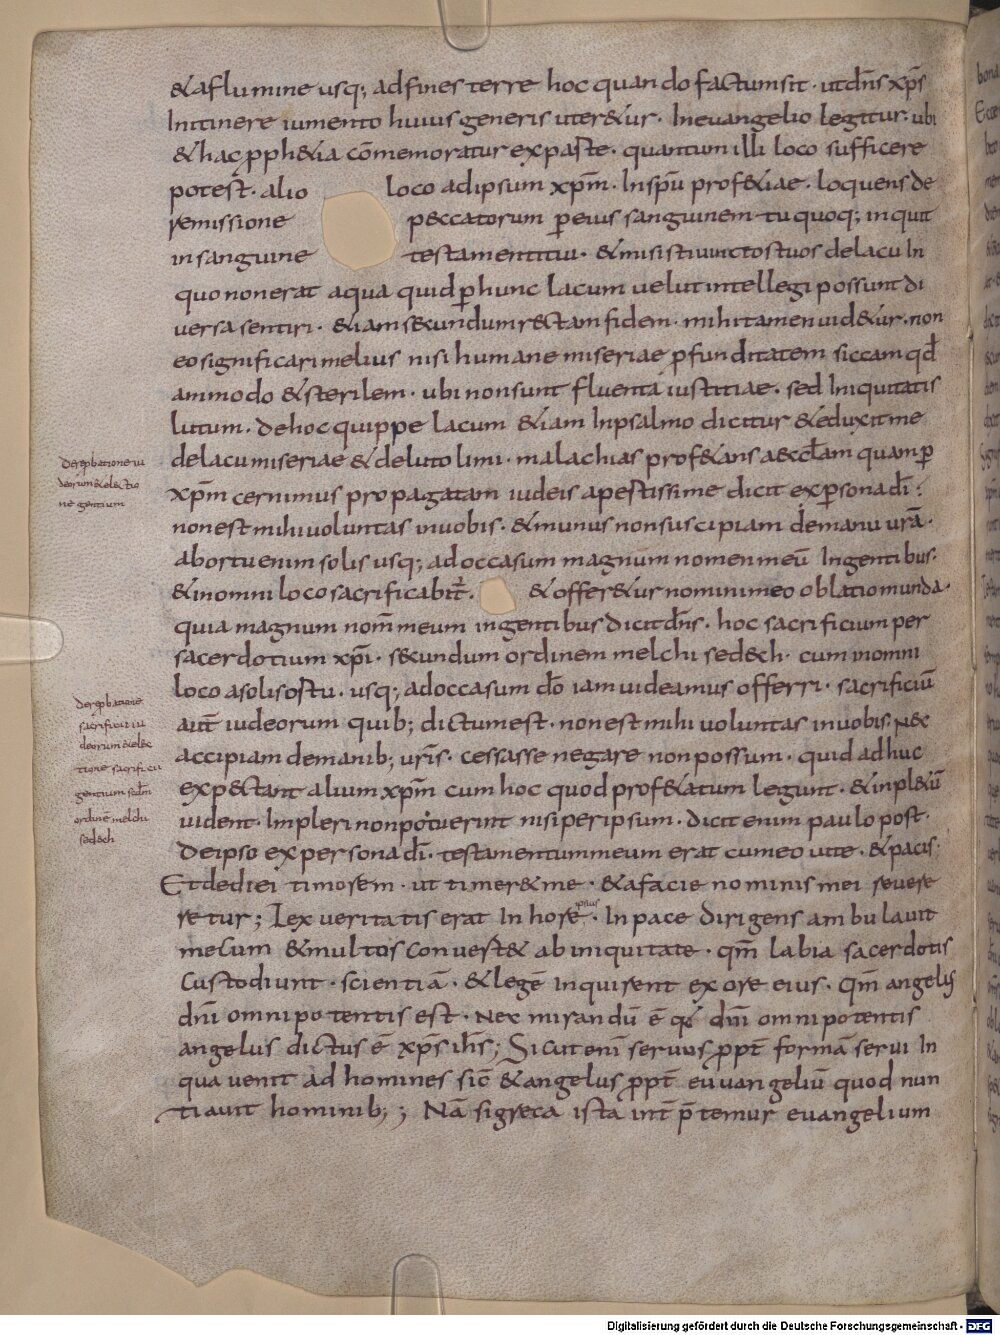 &a flumine usq; ad fines terre hoc quando factum sit · ut dn̄s xp̄s
In itinere iumento huius generis uter&ur · In euangelio legitur · ubi
& hac pph&ia cōmemoratur ex parte · quantum illi loco sufficere
potest · alio loco ad ipsum xp̄m · In sp̄u prof&iae · loquens de
remissione peccatorum p eius sanguinem tu quoq; inquit
in sanguine testamenti tui · & misisti uinctos tuos de lacu In
quo non erat aqua quid p hunc lacum uelut intellegi possunt di
uersa sentiri · &iam secundum rectam fidem · mihi tamen uid&ur · non
eo significari melius nisi humane miseriae pfunditatem siccam qd̄
ammodo & sterilem · ubi non sunt fluenta iustitiae · sed Iniquitatis
lutum · de hoc quippe lacum &iam In psalmo dicitur & eduxit me
de lacu miseriae & de luto limi · malachias prof&ans aecclam quam p
xp̄m cernimus propagatam iudeis apertissime dicit ex psona dī :
non est mihi uoluntas in uobis · & munus non suscipiam de manu urā ·
ab ortu enim solis usq; ad occasum magnum nomen meū In gentibus ·
& in omni loco sacrificabit̄ · & offer&ur nomini meo oblatio munda ·
quia magnum nom̄ meum in gentibus dicit dn̄s · hoc sacrificium per
sacerdotium xp̄i · secundum ordinem melchised&ch · cum in omni
loco a solis ostu · usq; ad occasum dō iam uideamus offerri · sacrificiū
aut̄ iudeorum quib; dictum est · non est mihi uoluntas in uobis · nec
accipiam de manib; uris · cessasse negare non possum · quid adhuc
expectant alium xp̄m cum hoc quod prof&atum legunt · & inpl&ū
uident · Impleri non potuerint nisi per ipsum · dicit enim paulo post ·
de ipso ex persona dī · testamentum meum erat cum eo uite · & pacis ·
Et dedi ei timorem · ut timer& me · & a facie nominis mei reuere
retur ; Lex ueritatis erat In hore ipsius · In pace dirigens ambulauit
mecum & multos conuert& ab iniquitate · qm̄ labia sacerdotis
Custodiunt · scientiā · & legē Inquirent ex ore eius · qm̄ angelus
dn̄i omnipotentis est · Nec mirandū ē q dn̄i omnipotentis
angelus dictus ē xp̄s ih̄s ; Sicut enī seruus ppt̄ formā serui In
qua uenit ad homines sic̄ & angelus ppt̄ euuangeliū quod nun
tiauit hominib; ; Nā si greca ista int̄ p̄temur euangelium
de repbatione iu
deorum & electio
ne gentium
de repbatione
sacrificii iu
deorum & elec
tione sacrificii
gentium scdm̄
ordinē melchi
sedech
Digitalisierung gefördert durch die Deutsche Forschungsgemeinschaft - DFG